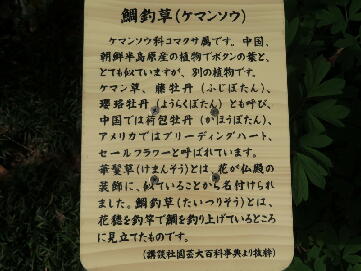 鯛釣草(ケマンソウ)
ケマンソウ科コマクサ属です。中国、
朝鮮半島原産の植物でボタンの葉と、
とても似ていますが、別の植物です。
ケマン草、藤牡丹(ふじぼたん)、
瓔珞牡丹(ようらくぼたん)とも呼び、
中国では荷包牡丹(かほうぼたん)、
アメリカではブリーディングハート、
セールフラワーと呼ばれています。
華鬘草(けまんそう)とは、花が仏殿の
装飾に、似ていることから名付けられ
ました。鯛釣草(たいつりそう)とは、
花穂を釣竿で鯛を釣り上げているところ
に見立てたものです。
(講談社園芸大百科事典より抜粋)